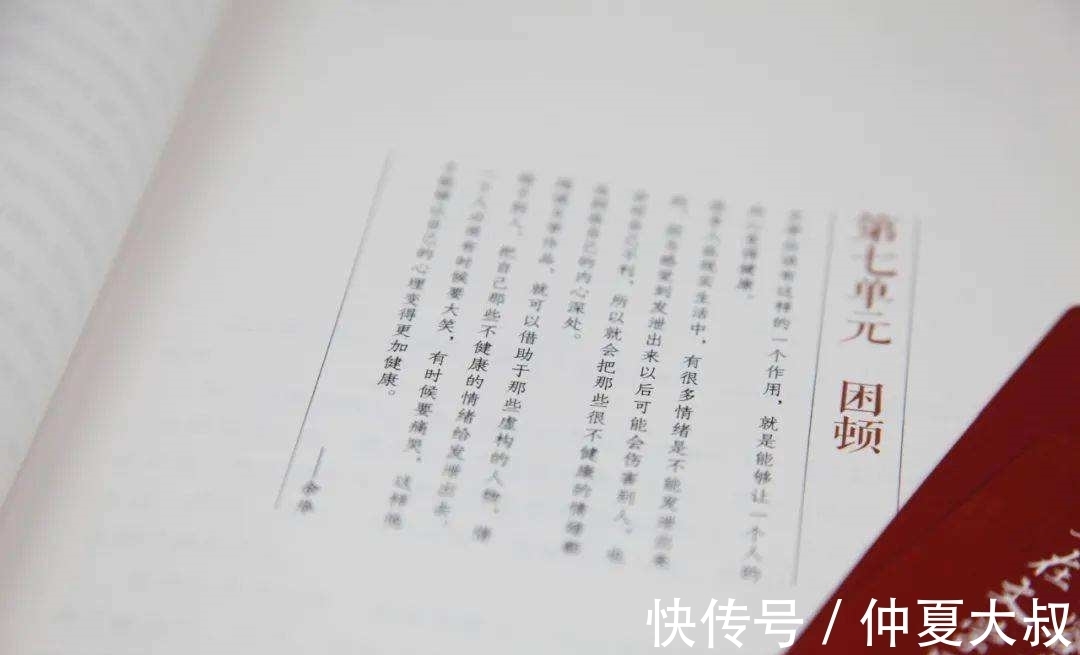 第七单元 困顿
文学应该有这样的一个作用，就是能够让一个人的
身心变得健康。
很多人在现实生活中，有很多情绪是不能发泄出来
的，因为感觉到发泄出来以后可能会伤害别人，也
会对自己不利，所以就会把那些很不健康的情绪都
自己的内心深处。
文学作品，就可以借助于那些虚构的人物、情
别人，把自己那些不健康的情绪给发泄出去，
一个人必须有时候要大笑，有时候要痛哭，这样他
自己的心理变得更加健康。
——余华
快传号 / 仲夏大叔